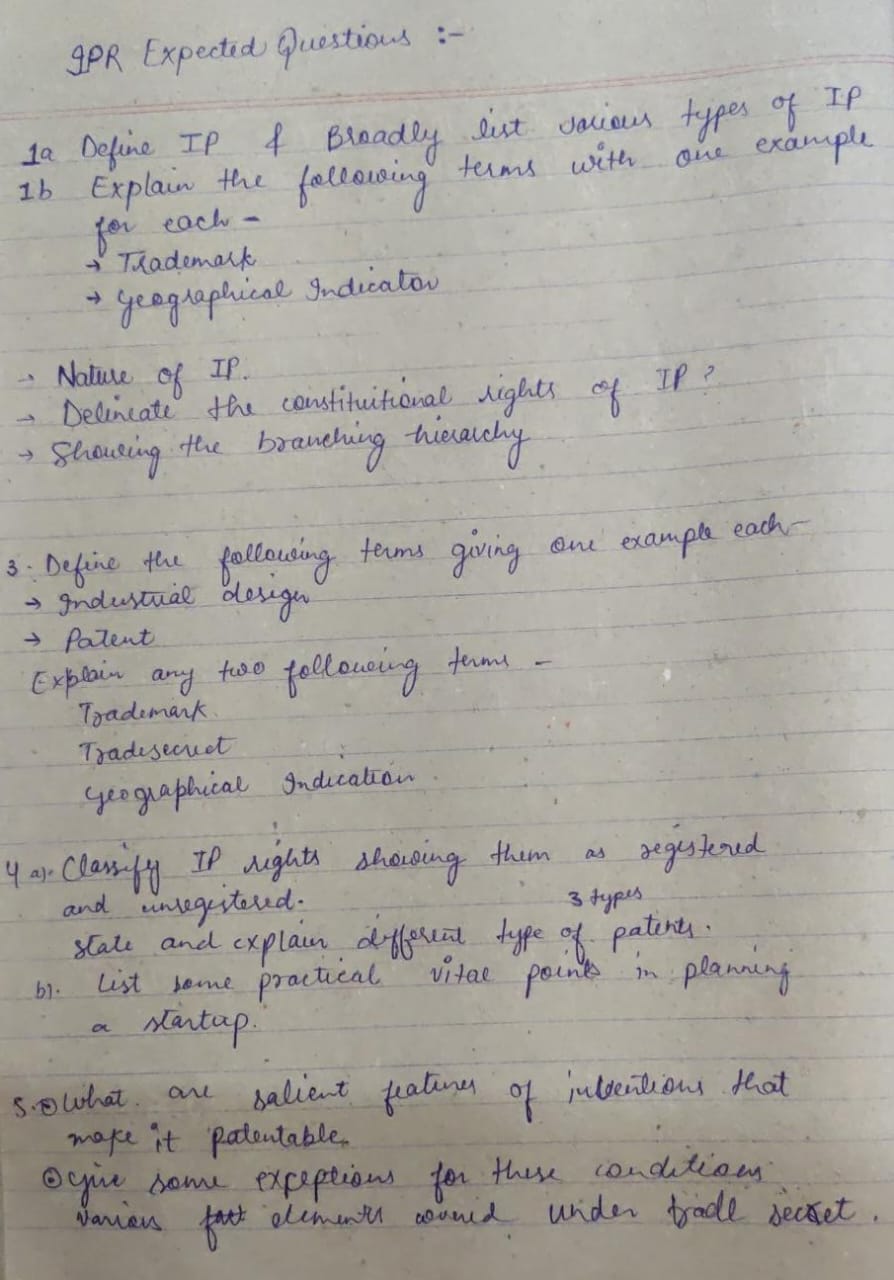 IPR Expected Questions :-
1a Define IP & Broadly list various types of IP
1b Explain the following terms with one example
for each -
→ Trademark
→ Geographical Indicator
→ Nature of IP.
→ Delineate the constituitional rights of IP?
→ Showing the branching hierarchy
3. Define the following terms giving one example each -
→ Industrial design
→ Patent
Explain any two following terms -
Trademark
Tradesecret
Geographical Indication
4 a). Classify IP rights showing them as registered
and unregistered.
3 types
State and explain different type of patents.
b). List some practical vital points in planning
a startup.
5. a) What are salient features of inventions that
make it patentable.
give some exceptions for these conditions
various elements covered under trade secret.